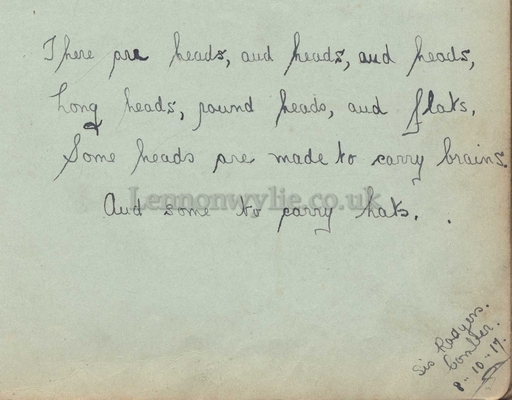 There are heads, and heads, and heads,
Long heads, round heads, and flats,
Some heads are made to carry brains
And some to carry hats.
Lennonwylie.co.uk
Sis Rodgers.
Coulter.
8-10-17.